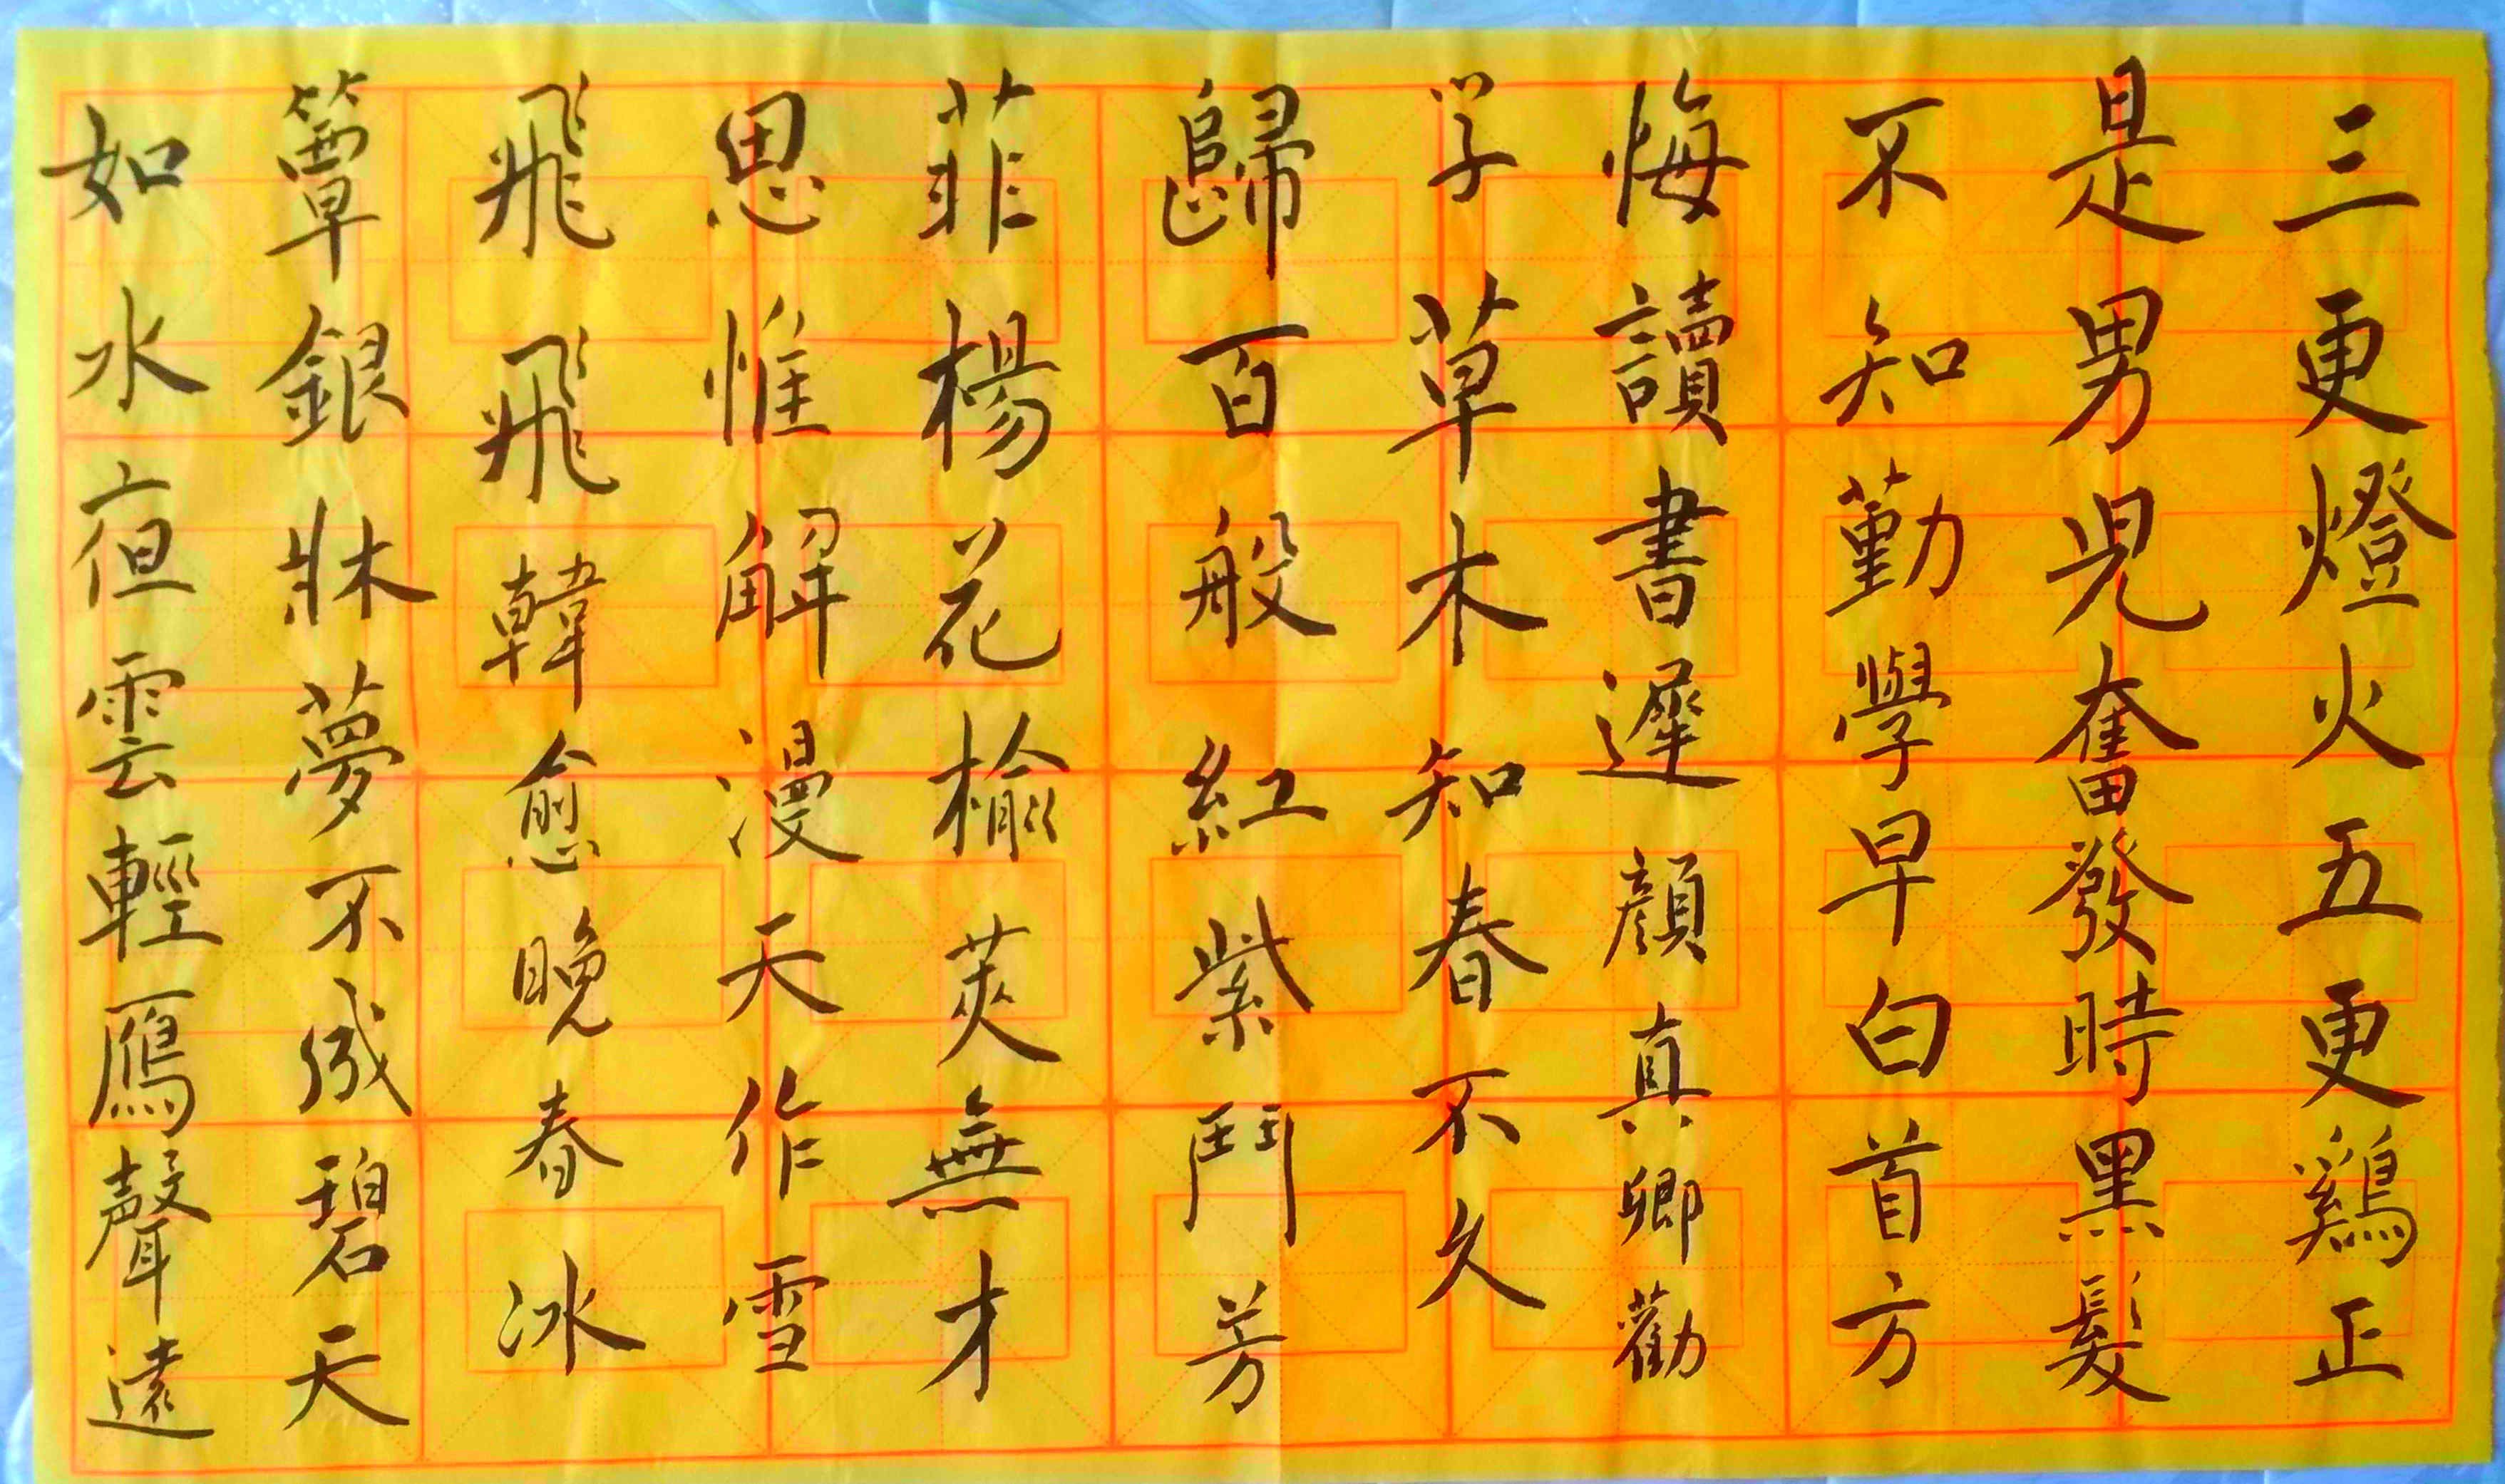 三更燈火五更鷄正
是男兒奮發時黑髮
不知勤學早白首方
悔讀書遲顔真卿勸
学草木知春不久
歸百般紅紫鬥芳
菲楊花榆莢無才
思惟解漫天作雪
飛飛韓愈晚春冰
簟銀牀夢不成碧天
如水夜雲輕鴈聲遠